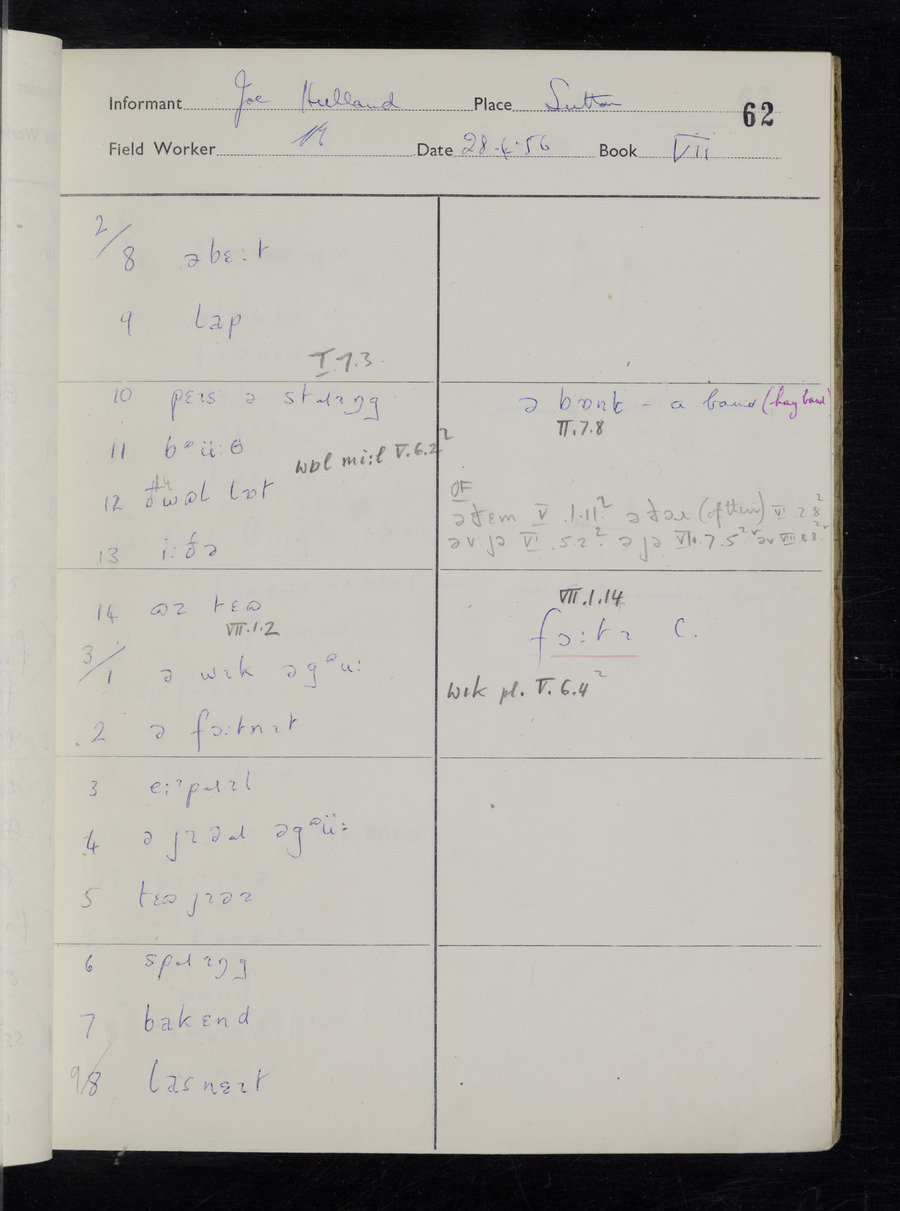 Informant Joe Hulland Place Sutton 62
Field Worker Date 28.6.56 Book VII
2/
8 əbɛːt
9 lap
I.7.3.
10 pɛɪs ə stɹɪŋg ə bɒnk – a band (hay band)
II.7.8
11 bᵊüːθ wɒl miːl V.6.2²
12 lɒt
OF
ətɛm V.1.11² (of them) VI.2.8²
əv jə VI.5.2² ə jə VII.7.5² əv VIII.8.8²
13 iːðə
14 tɛɷ
VII.1.2
VII.1.14
fɔːtɪ C.
3/
1 ə wɪk əgᵊuː
wɪk pl. V.6.4²
2 ə fɔːtnɪt
3 eːᶦpɹɪl
4 ə jɪəɹ əgᵊüː
5 tɛɷ jɪəɪ
6 spɹɪŋg
7 bakɛnd
9/8 lasnɛɪt